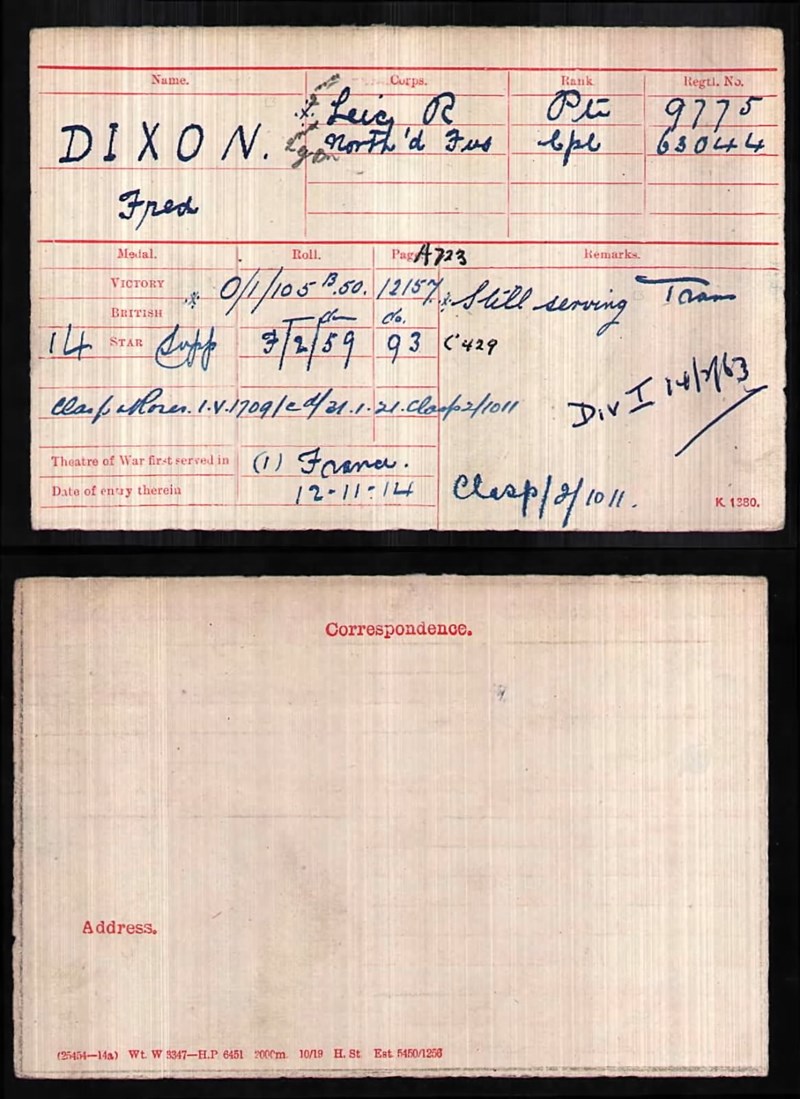 Name. Corps. Rank Regtl. No.
Leic R Pte 9775
DIXON. North'd Fus Cpl 63044
Fred
Medal. Roll. Page A723 Remarks.
VICTORY O/1/105 B.50. 12157 * Still serving
BRITISH * do do.
14 STAR Supp F/2/59 93 C'429
Clasp & Roses. I.V. 1709/ 21.1.21. Clasp 2/1011
Div I
Theatre of War first served in (1) France.
Date of entry therein 12-11-14
Clasp/2/1011.
K. 1380.
Correspondence.
Address.
(25454—14a) Wt. W 3347—H.P. 6451 200Cm. 10/19 H. St Est. 5450/1256